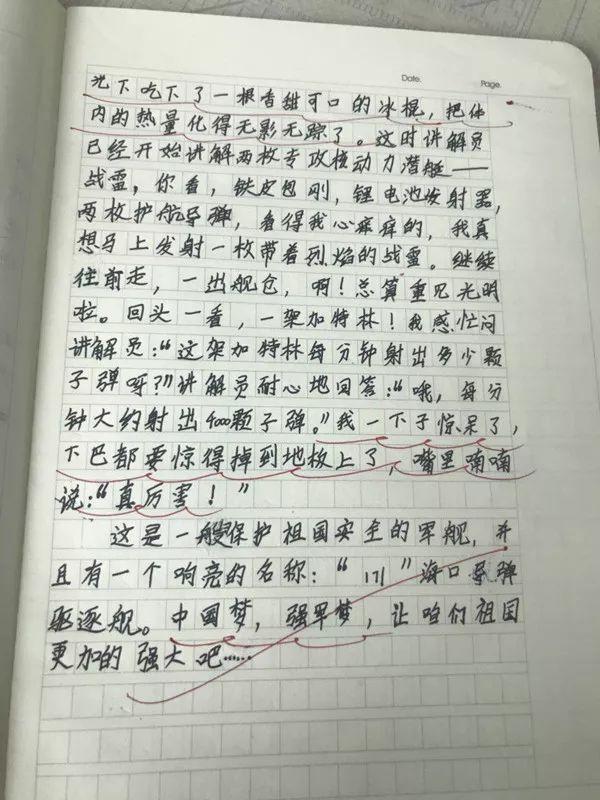 Date.
Page.
光下吃下了一根香甜可口的冰棍，把体
内的热量化得无影无踪了。这时讲解员
已经开始讲解两枚专攻核动力潜艇——
战雷，你看，铁皮包刚，锂电池发射器，
两枚护航导弹，看得我心痒痒的，我真
想马上发射一枚带着烈焰的战雷。继续
往前走，一出舰仓，啊！总算重见光明
啦。回头一看，一架加特林！我感忙问
讲解员：“这架加特林每分钟射出多少颗
子弹呀？”讲解员耐心地回答：“哦，每分
钟大约射出4000颗子弹。”我一下子惊呆了，
下巴都要惊得掉到地板上了，嘴里喃喃
说：“真厉害！”
这是一艘保护祖国安全的军舰，并
且有一个响亮的名称：“171”海口导弹
驱逐舰。中国梦，强军梦，让咱们祖国
更加的强大吧……